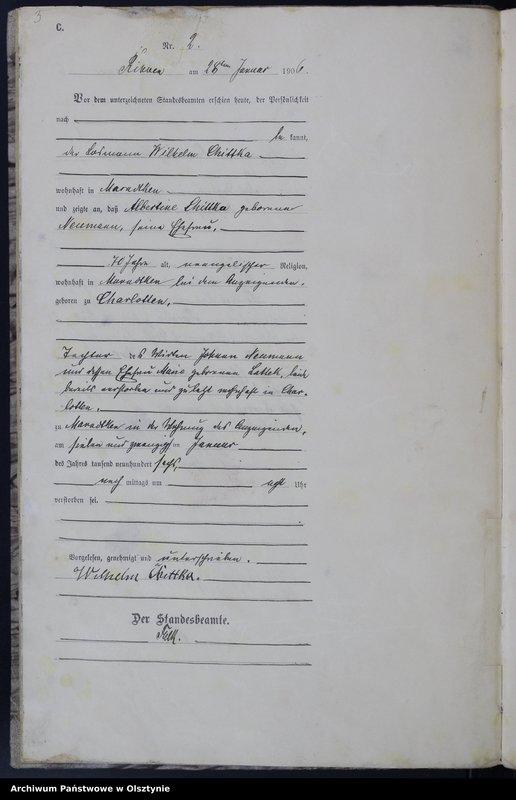 3
C.
Nr. 2.
am 28ten Januar 1906.
Vor dem unterzeichneten Standesbeamten erschien heute, der Persönlichkeit
nach
be kannt,
der Losmann Wilhelm Chittka
wohnhaft in Maradtken
und zeigte an, daß Albertine Chittka geborene
Neumann, seine Ehefrau,
70 Jahre alt, evangelischer Religion,
wohnhaft in Maradtken bei dem Anzeigenden,
geboren zu Charlotten,
Tochter des Wirten Johann Neumann
und dessen Ehefrau Marie geborenen Lattek, beide
bereits verstorben und zuletzt wohnhaft in Char-
lotten,
zu Maradtken in der Wohnung des Anzeigenden,
am sieben und zwanzigsten Januar
des Jahres tausend neunhundert sechs
nach mittags um acht Uhr
verstorben sei.
Vorgelesen, genehmigt und unterschrieben.
Wilhelm Chittka.
Der Standesbeamte.
Archiwum Państwowe w Olsztynie